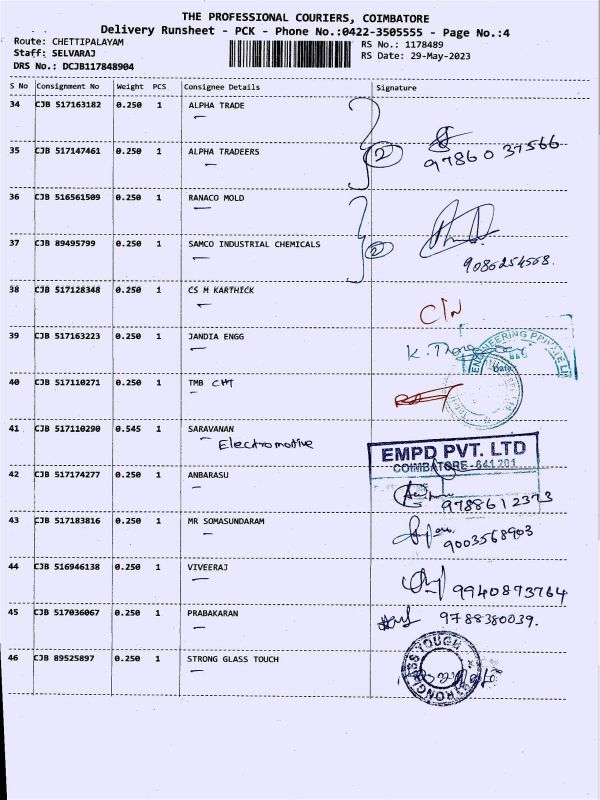 THE PROFESSIONAL COURIERS, COIMBATORE
Delivery Runsheet - PCK - Phone No.:0422-3505555 - Page No.:4
Route: CHETTIPALAYAM
RS No.: 1178489
Staff: SELVARAJ
RS Date: 29-May-2023
DRS No.: DCJB117848904
S No Consignment No Weight PCS Consignee Details Signature
34 CJB 517163182 0.250 1 ALPHA TRADE
35 CJB 517147461 0.250 1 ALPHA TRADEERS 2 97860 37566
36 CJB 516561509 0.250 1 RANACO MOLD
37 CJB 89495799 0.250 1 SAMCO INDUSTRIAL CHEMICALS 2
9086254568.
38 CJB 517128348 0.250 1 CS M KARTHICK
C/N
39 CJB 517163223 0.250 1 JANDIA ENGG
40 CJB 517110271 0.250 1 TMB CHT
41 CJB 517110290 0.545 1 SARAVANAN
Electromotive
EMPD PVT. LTD
COIMBATORE-641201
42 CJB 517174277 0.250 1 ANBARASU
9788612373
43 CJB 517183816 0.250 1 MR SOMASUNDARAM
9003568903
44 CJB 516946138 0.250 1 VIVEERAJ
9940873764
45 CJB 517036067 0.250 1 PRABAKARAN 9788380039.
46 CJB 89525897 0.250 1 STRONG GLASS TOUCH